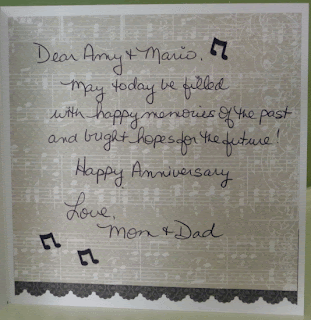 Dear Amy & Mario,
May today be filled
with happy memories of the past
and bright hopes for the future!
Happy Anniversary
Love,
Mom & Dad